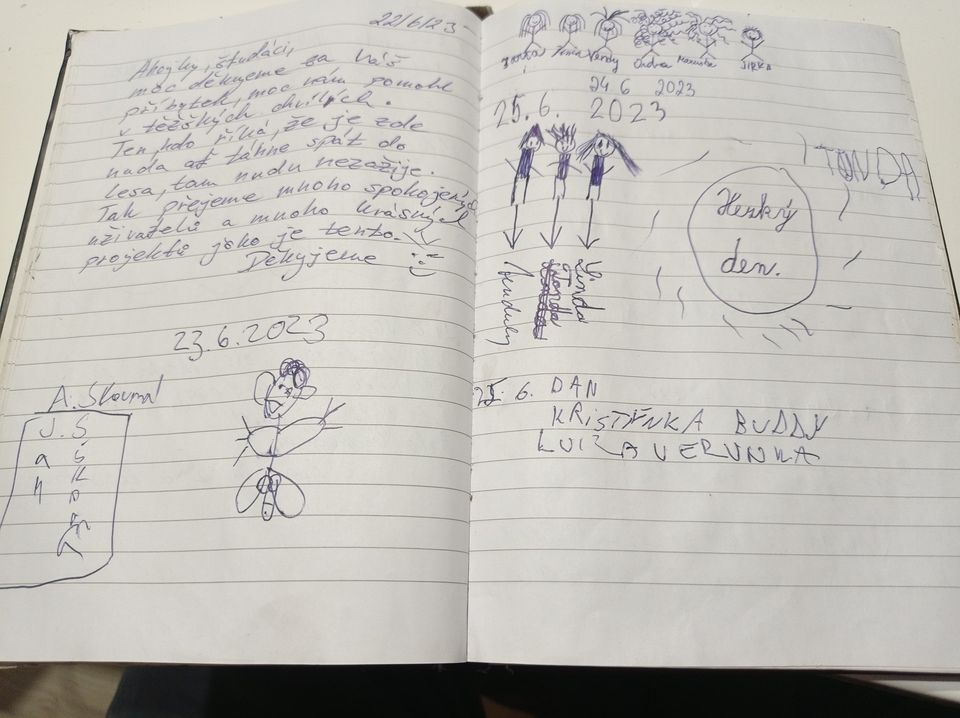 22/6/23
Ahojky, študáci,
moc děkujeme za Váš
příbytek, moc nám pomohl
v těžkých chvílích.
Ten, kdo říká, že je zde
nuda ať táhne spát do
lesa, tam nudu nezažije.
Tak přejeme mnoho spokojených
uživatelů a mnoho krásných
projektů jako je tento.
Děkujeme
23.6.2023
A.
J. Š
a
Vendy Ondra JIRKA
24 6 2023
25.6. 2023
TONDA
Hezký
den.
Linda
25. 6. DAN
KRISTÝNKA BUDDY
LUIZA VERUNKA